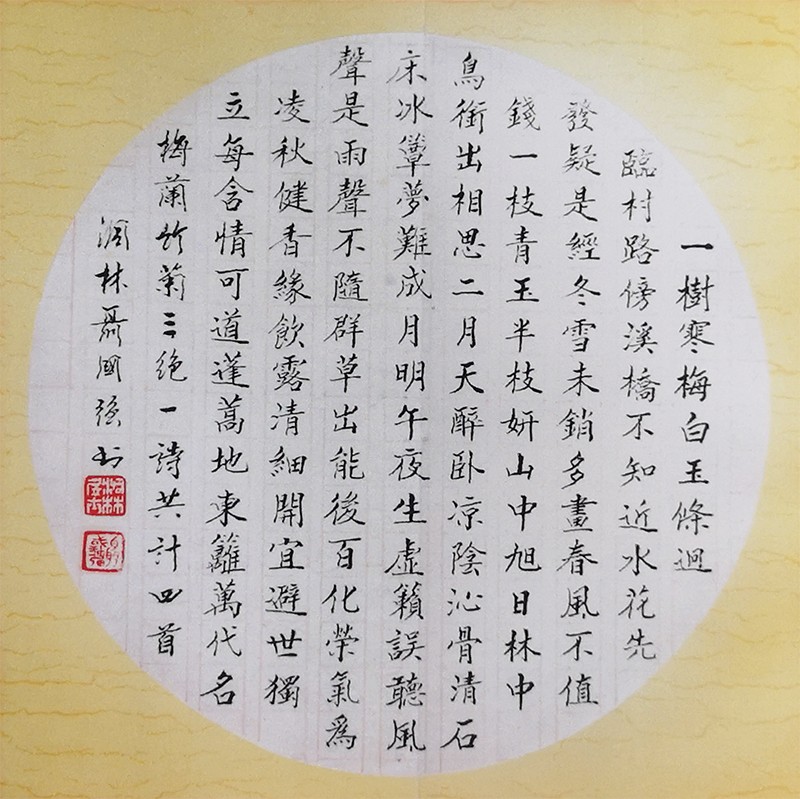 一樹寒梅白玉條迥
臨村路傍溪橋不知近水花先
發疑是經冬雪未銷多畫春風不值
錢一枝青玉半枝妍山中旭日林中
鳥銜出相思二月天醉卧凉陰沁骨清石
床冰簟夢難成月明午夜生虛籟誤聽風
聲是雨聲不隨群草出能後百化榮氣為
凌秋健香緣飲露清細開宜避世獨
立每含情可道蓬蒿地東籬萬代名
梅蘭竹菊三絕一詩共計四首
林聶國強书